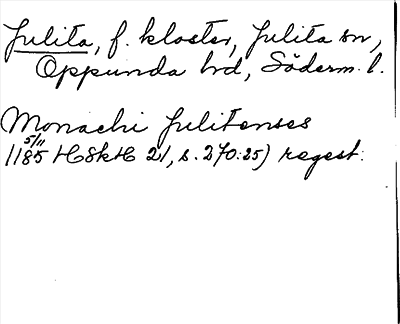 Julita, f. kloster, Julita sn,
Oppunda hd, Söderm. l.
Monachi Julitenses
1185 5/11 HSkH 21, s. 270:25) regest.